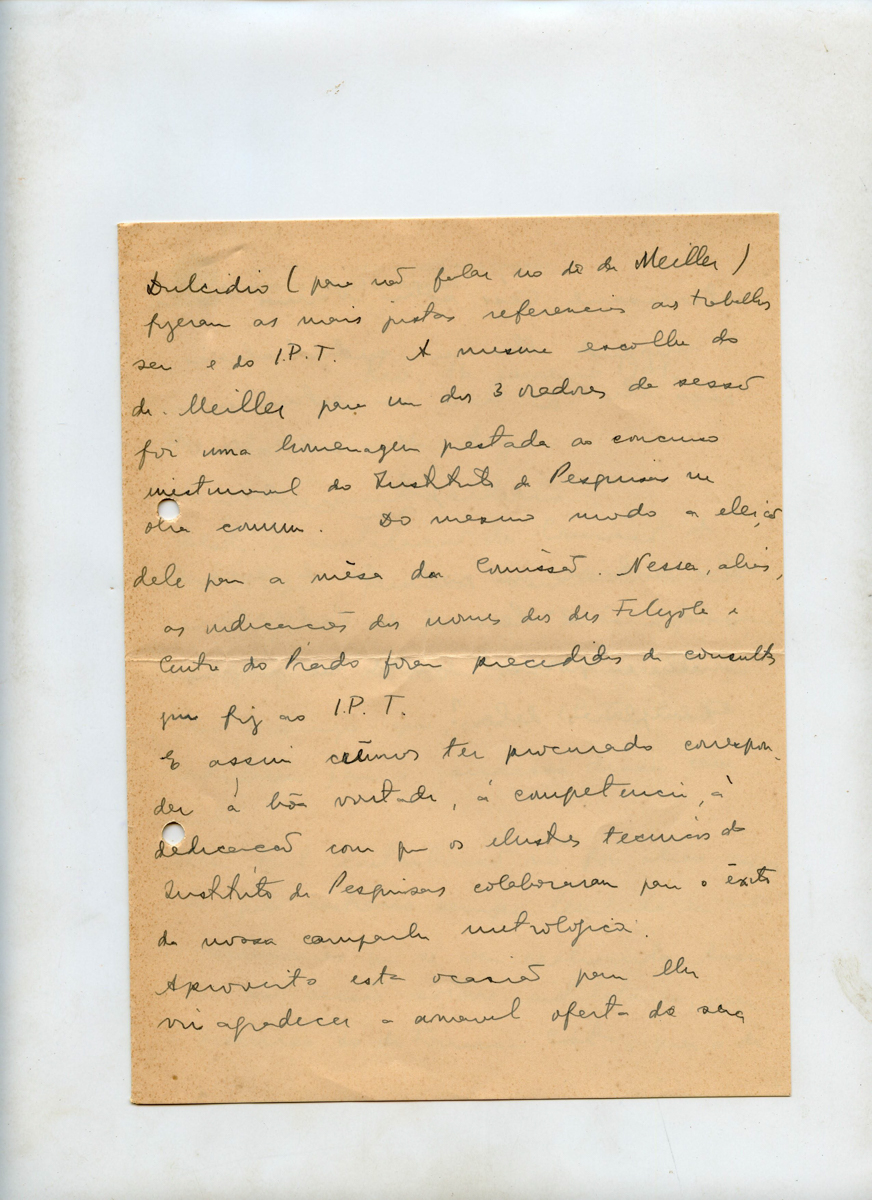 Dulcidio (para não falar no do dr Meiller)
fizeram as mais justas referencias aos trabalhos
seu e do I.P.T. A mesma escolha do
dr. Meiller para um dos 3 oradores da sessão
foi uma homenagem prestada ao concurso
inestimavel do Instituto de Pesquisas na
obra commum. Do mesmo modo a eleição
dele para a mêsa da Comissão. Nessa, aliás,
as indicacões dos nomes dos drs e
Cintra do Prado foram precedidas de consulta
que fiz ao I.P.T.
E assim crêmos ter procurado correspon-
der á bôa vontade, á competencia, á
dedicacão com que os ilustres tecnicos do
Instituto de Pesquisas colaboraram para o êxito
da nossa campanha metrologica.
Aproveito esta ocasião para lhe
vir agradecer a amavel oferta de sua